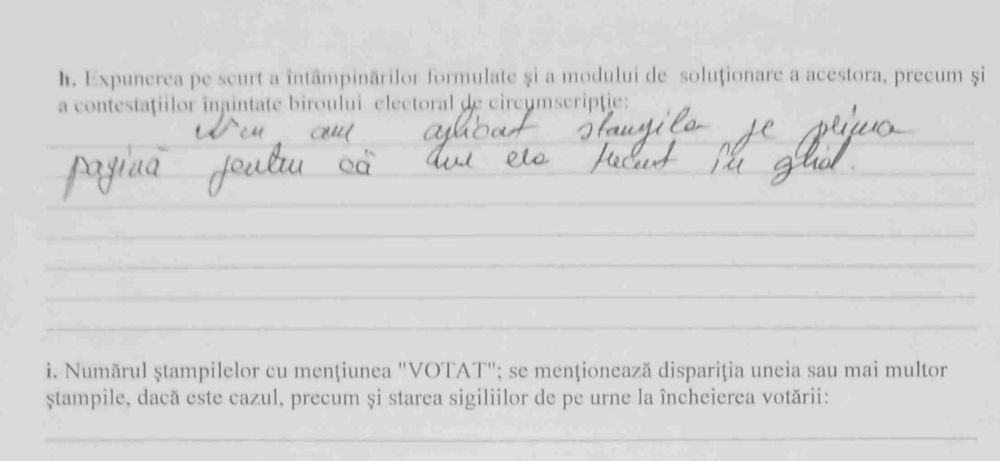 h. Expunerea pe scurt a întâmpinărilor formulate şi a modului de soluţionare a acestora, precum şi
a contestaţiilor înaintate biroului electoral de circumscripţie:
N'eu am aplicat ştampila pe prima
pagină pentru că nu era trecut în ghid.
i. Numărul ştampilelor cu menţiunea "VOTAT"; se menţionează dispariţia uneia sau mai multor
ştampile, dacă este cazul, precum şi starea sigiliilor de pe urne la încheierea votării: